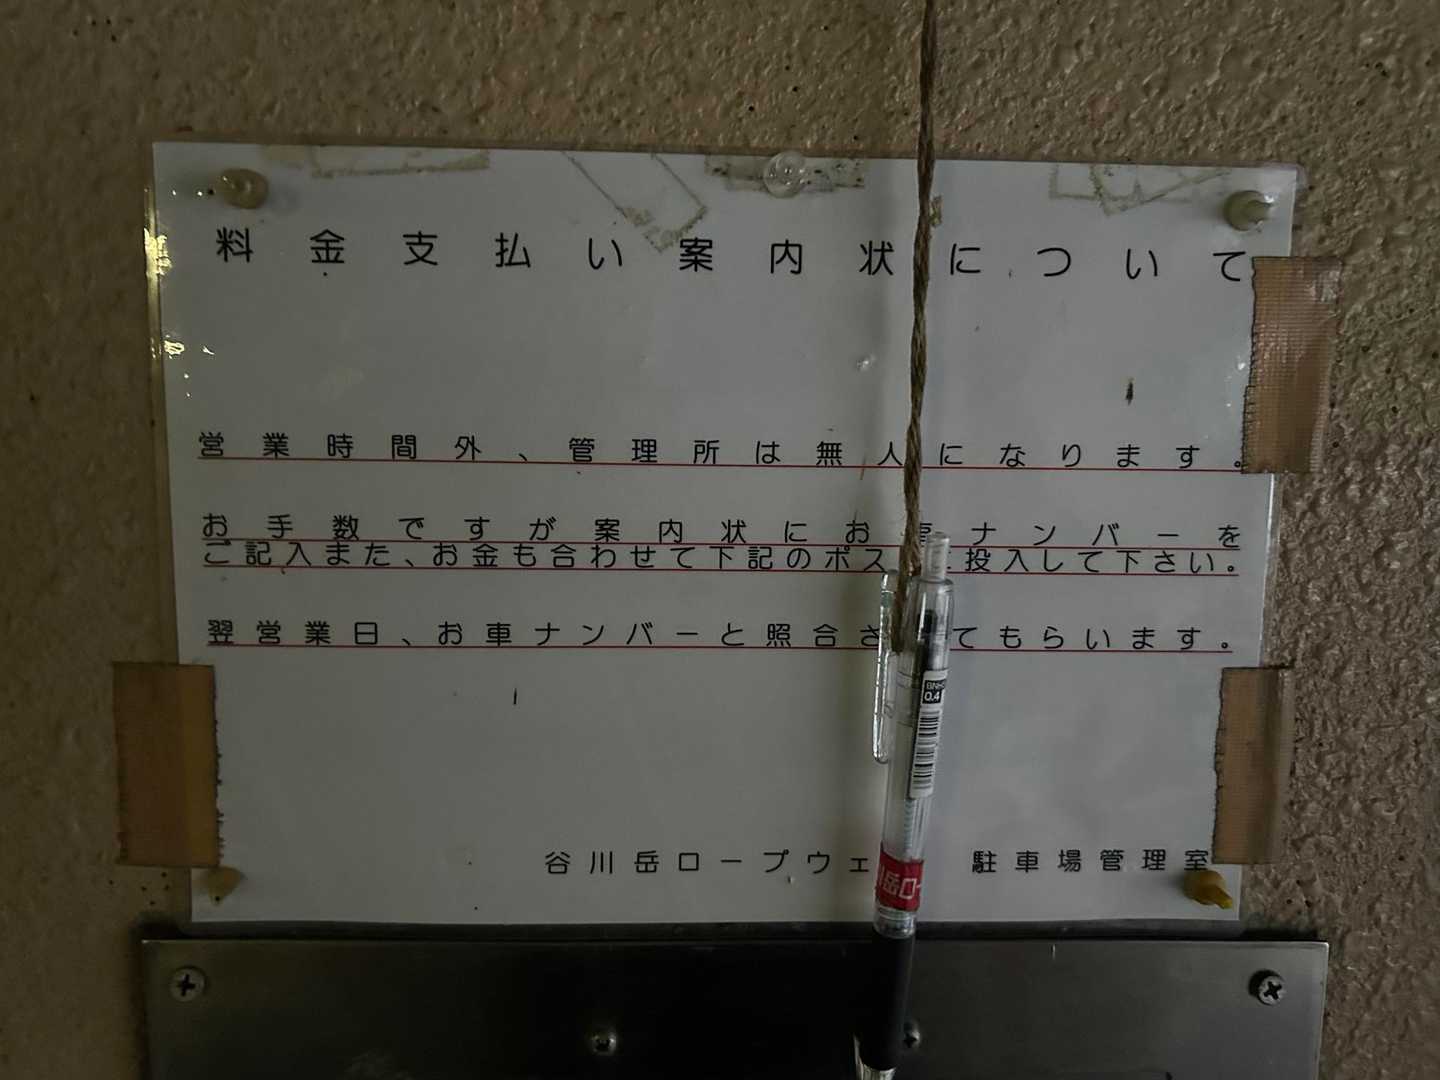 料金支払い案内状について
営業時間外、管理所は無人になります。
お手数ですが案内状にお車ナンバーを
ご記入また、お金も合わせて下記のポスに投入して下さい。
翌営業日、お車ナンバーと照合さてもらいます。
谷川岳ロープウェ 駐車場管理室
0.4
岳ロー